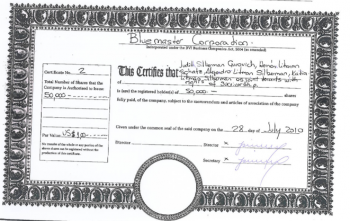 Bluemaster Corporation
Incorporated under the BVI Business Companies Act, 2004 (as amended)
Certificate No. 2
Total Number of Shares that the
Company is Authorised to Issue
50,000
Par Value US$1.00
No transfer of the whole or any portion of the
above shares can be registered without the
production of this certificate.
This Certifies that Judith Silberman
Litman Silberman, as joint tenants with
right of survivorship
of
is (are) the registered holder(s) of 50,000 shares
fully paid, of the company, subject to the memorandum and articles of association of the company
Given under the common seal of the said company on the 28 day of July 2010
Director
Director
Secretary